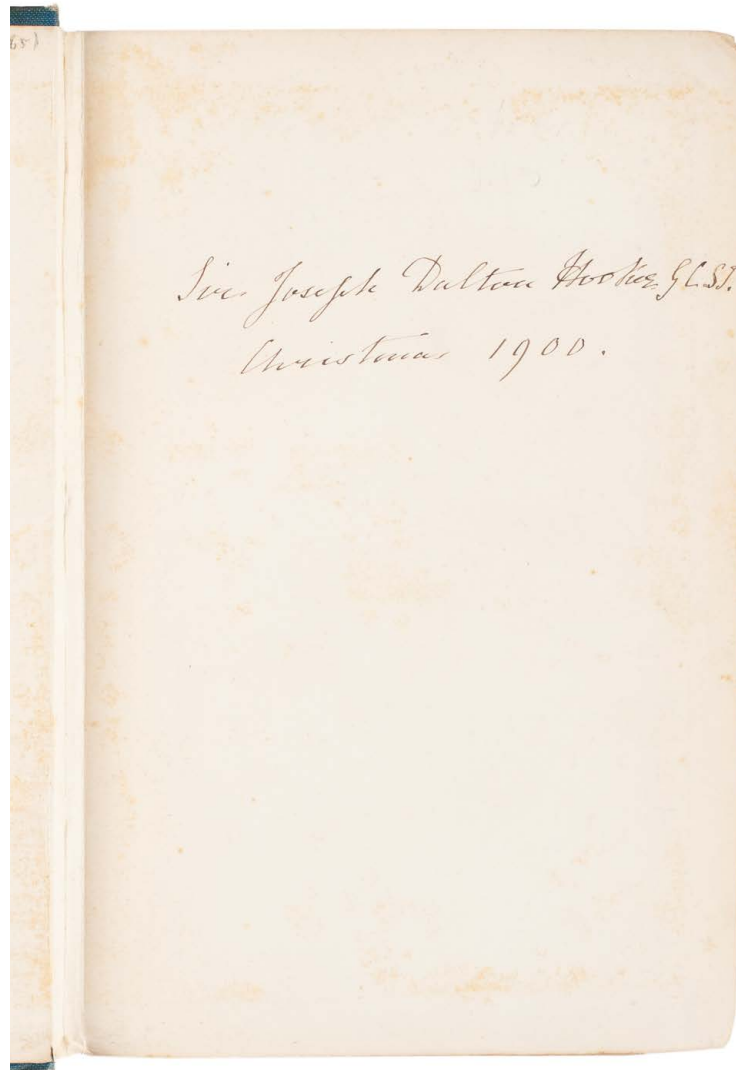 Sir Joseph Dalton Hooker G.C.S.I.
Christmas 1900.